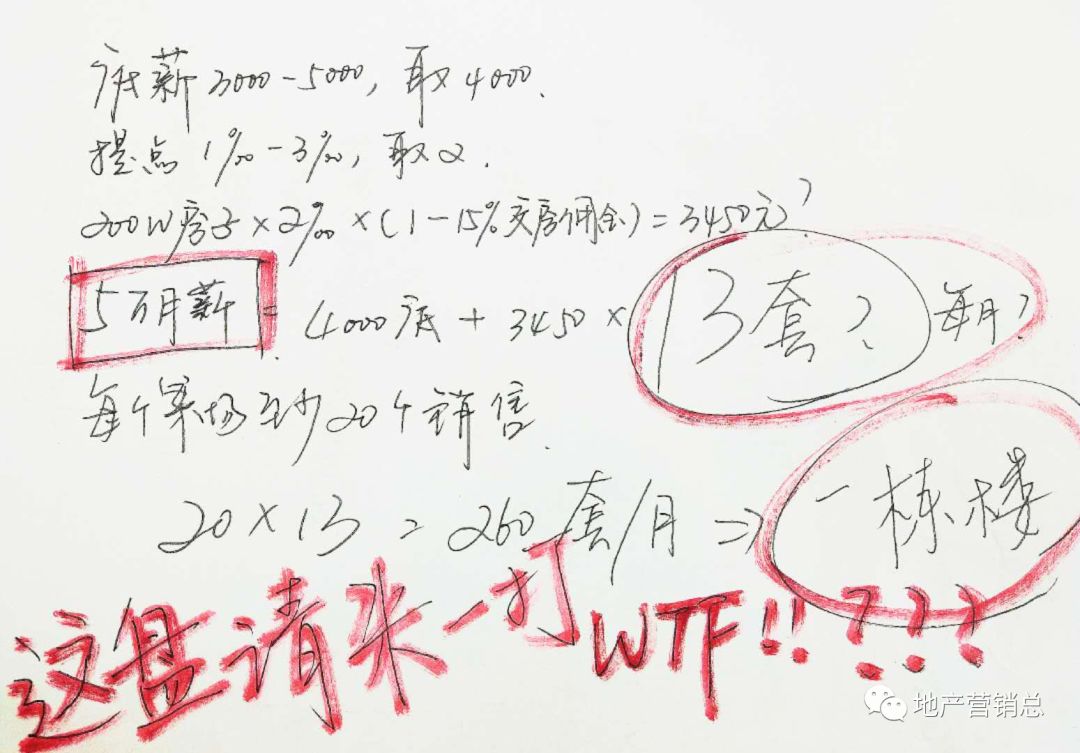 底薪3000-5000，取4000.
提点1‰-3‰，取2.
200W房子×2‰×(1-15%交房佣金)=3450元?
5万月薪=4000底+3450×13套?每月?
每个案场至少20个销售.
20×13=260套/月=>一栋楼
这盘请来一打WTF!!???
地产营销总